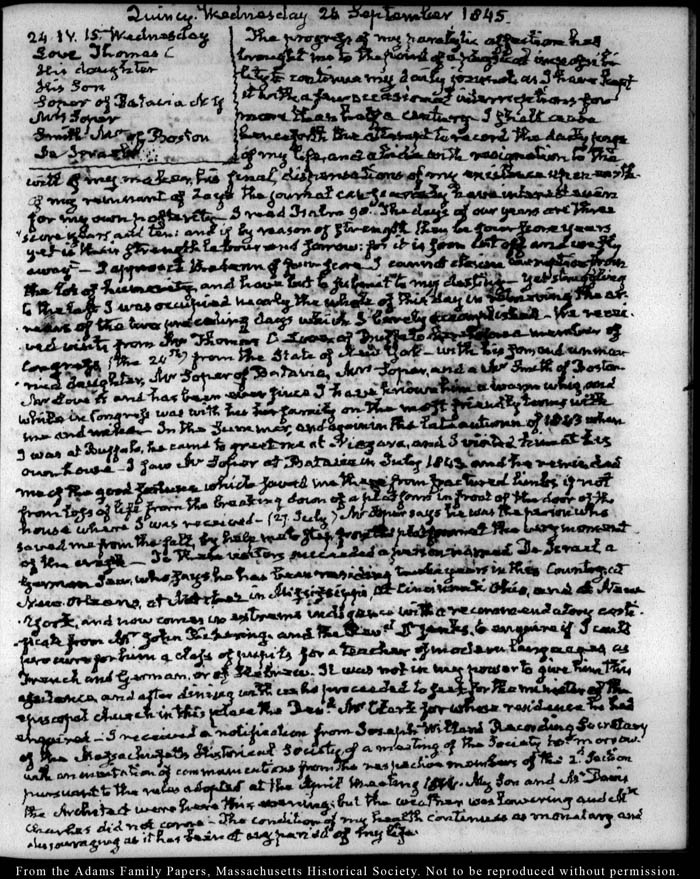 Quincy. Wednesday 24 September 1845.
24. IV. 15. Wednesday
Love Thomas C
His daughter
His Son
Soper of Batavia N.Y
Mrs Soper
Smith Mr of Boston
De Israel
The progress of my paralytic affection has
brought me to the point of
to continue my daily journal as I have kept
it with a few occasional interruptions for
more than half a century. I shall cease
henceforth the attempt to record the daily
of my life, and abide with resignation to the
will of my maker, his final dispensations of my existence upon earth.
of my remnant of days the journal can scarcely have interest even
for my own posterity. I read Psalm 90. The days of our years are three
score years and ten: and if by reason of strength they be four score years
yet is their strength labour and sorrow: for it is soon cut off and we fly
away — I approach the term of four score I cannot claim exemption from
the lot of humanity, and have but to submit to my destiny — Yet struggling
to the last I was occupied nearly the whole of this day in removing the ar-
rears of the two preceding days which I barely accomplished. We recei-
ved visits from Mr Thomas C. Love of Buffalo heretofore a member of
Congress (the 24th) from the State of New York — with his son and unmar-
ried daughter, Mr Soper of Batavia, Mrs Soper, and a Mr Smith of Boston.
Mr Love is and has been ever since I have known him a warm whig, and
while in Congress was with his family on the most friendly terms with
me and mine. In the Summer, and again in the late autumn of 1843 when
I was at Buffalo, he came to greet me at Niagara, and I visited him at his
own house. I saw Mr Soper at Batavia in July 1843 and he reminded
me of the good fortune which saved me there from fractured limbs if not
from loss of life from the breaking down of a platform in front of the door of the
house where I was received — (27. July) Mr Soper says he was the person who
saved me from the fall by help me to step from the platform at the very moment
of the crash — To these visitors succeeded a person named De Israel a
German Jew, who says he has been residing twelve years in this Country, at
New. Orleans, at Natchez in Mississippi at Cincinnati Ohio, and at New
York, and now comes in extreme indigence with a recommendatory certi-
ficate from Mr John Pickering, and the Revd Dr Jenks, to enquire if I could
procure for him a class of pupils for a teacher of modern languages, as
French and German, or of Hebrew. It was not in my power to give him this
assistance, and after dining with us he proceeded to seek for the minister of the
episcopal church in this place the Revd Mr Clark for whose residence he had
enquired — I received a notification from Joseph Willard Recording Secretary
of the Massachusetts Historical Society, of a meeting of the Society to morrow
with an of communications from the respective members of the 2d Section
pursuant to the rules adopted at the April Meeting My Son and Mr
the Architect were here this evening; but the weather was lowering and Mrs
Charles did not come — The condition of my health continues as monotony and
discouraging as it has been at any period of my life.
From the Adams Family Papers, Massachusetts Historical Society. Not to be reproduced without permission.